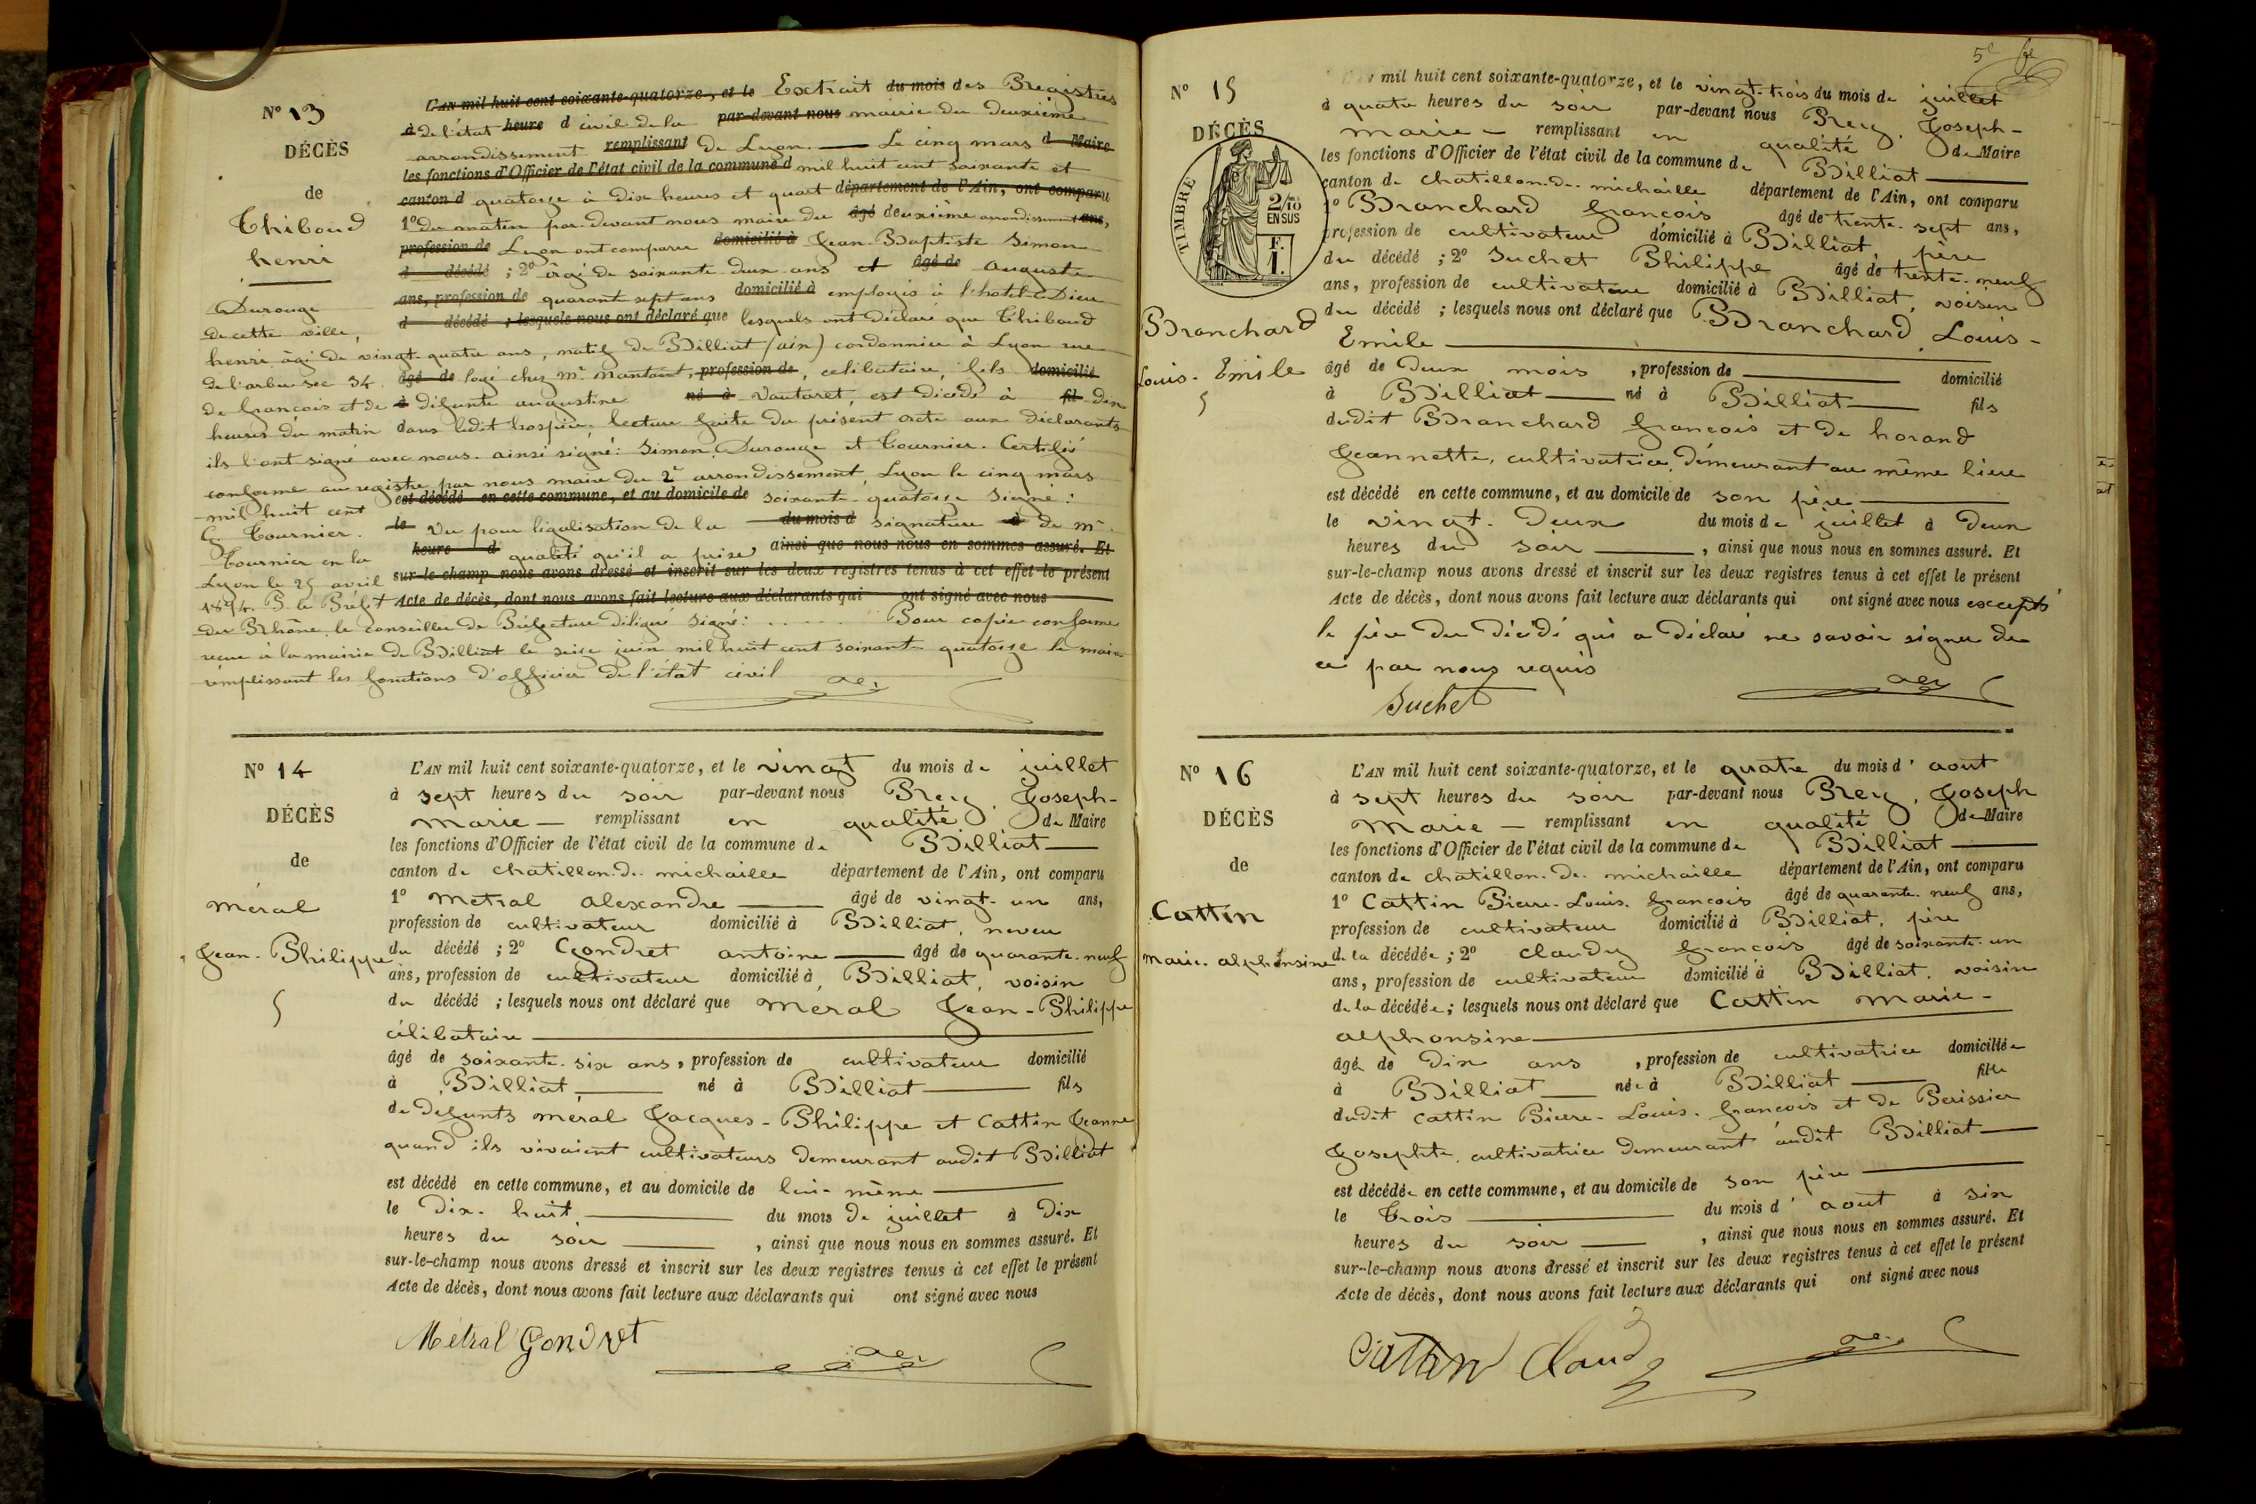 N° 13
DÉCÈS
de
Thiboud
henri
L'AN mil huit cent soixante-quatorze, et le Extrait du mois des Registres
à de l'état heure d civil de la par-devant nous mairie du deuxième
arrondissement remplissant de Lyon. — Le cinq mars d Maire
les fonctions d'Officier de l'état civil de la commune d mil huit cent soixante et
canton d quatorze à dix heures et quart département de l'Ain, ont comparu
1° du matin par devant nous maire du âgé deuxième arrondissement ans,
profession de Lyon ont comparu domicilié à Jean-Baptiste Simon
d décédé ; 2° âgé de soixante deux ans et âgé de auguste
Durouge ans, profession de quarante sept ans domicilié à employés à l'hôtel-Dieu
de cette ville, d décédé ; lesquels nous ont déclaré que lesquels ont déclaré que Thiboud
henri âgé de vingt-quatre ans, natif de Billiat (ain) cordonnier à Lyon rue
de l'arbre sec 34. âgé de logé chez Mr. Nantant, profession de, célibataire, fils domicilié
de françois et de à défunte augustine né à Vautaret, est décédé à fil dix
heures du matin dans ledit hospice. lecture faite du présent acte aux déclarants
ils l'ont signé avec nous. ainsi signé : Simon, Durouge et Tournier. Certifié
conforme au registre par nous maire du 2e arrondissement, Lyon le cinq mars
mil huit cent est décédé en cette commune, et au domicile de soixante-quatorze signé :
C. Tournier. le Vu pour légalisation de la du mois d signature à de Mr.
Tournier en la heure d qualité qu'il a prise ainsi que nous nous en sommes assuré. Et
Lyon le 25 avril sur-le-champ nous avons dressé et inscrit sur les deux registres tenus à cet effet le présent
1874. P. le Préfet Acte de décès, dont nous avons fait lecture aux déclarants qui ont signé avec nous
du Rhône, le conseiller de Préfecture délégué signé : . . . . . . Pour copie conforme
reçue à la mairie de Billiat le seize juin mil huit cent soixante quatorze le maire
remplissant les fonctions d'officier de l'état civil
N° 14
DÉCÈS
de
méral
Jean-Philippe
L'AN mil huit cent soixante-quatorze, et le vingt du mois de juillet
à sept heures du soir par-devant nous Rey, Joseph-
marie — remplissant en qualité de Maire
les fonctions d'Officier de l'état civil de la commune de Billiat —
canton de chatillon-de-michaille département de l'Ain, ont comparu
1° metral alexandre — âgé de vingt-un ans,
profession de cultivateur domicilié à Billiat, neveu
du décédé ; 2° Gondret antoine — âgé de quarante-neuf
ans, profession de cultivateur domicilié à Billiat, voisin
du décédé ; lesquels nous ont déclaré que méral Jean-Philippe
célibataire —
âgé de soixante-six ans, profession de cultivateur domicilié
à Billiat — né à Billiat — fils
de défunts méral Jacques-Philippe et Cattin Jeanne
quand ils vivaient cultivateurs demeurant audit Billiat
est décédé en cette commune, et au domicile de lui-même —
le dix-huit — du mois de juillet à dix
heures du soir —, ainsi que nous nous en sommes assuré. Et
sur-le-champ nous avons dressé et inscrit sur les deux registres tenus à cet effet le présent
Acte de décès, dont nous avons fait lecture aux déclarants qui ont signé avec nous
Métral Gondret
5e
N° 15
DÉCÈS
TIMBRE
2/10
EN SUS
F. I.
Branchard
Louis-Emile
mil huit cent soixante-quatorze, et le vingt-trois du mois de juillet
à quatre heures du soir par-devant nous Rey, Joseph-
marie — remplissant en qualité de Maire
les fonctions d'Officier de l'état civil de la commune de Billiat —
canton de chatillon-de-michaille département de l'Ain, ont comparu
1° Branchard françois âgé de trente-sept ans,
profession de cultivateur domicilié à Billiat, père
du décédé ; 2° Suchet Philippe âgé de trente-neuf
ans, profession de cultivateur domicilié à Billiat, voisin
du décédé ; lesquels nous ont déclaré que Branchard, Louis-
Emile —
âgé de deux mois, profession de — domicilié
à Billiat — né à Billiat — fils
dudit Branchard françois et de horand
Jeannette, cultivatrice, demeurant au même lieu
est décédé en cette commune, et au domicile de son père —
le vingt-deux du mois de juillet à deux
heures du soir —, ainsi que nous nous en sommes assuré. Et
sur-le-champ nous avons dressé et inscrit sur les deux registres tenus à cet effet le présent
Acte de décès, dont nous avons fait lecture aux déclarants qui ont signé avec nous excepté
le père du décédé qui a déclaré ne savoir signer de
ce par nous requis
Suchet
N° 16
DÉCÈS
de
Cattin
marie-alphonsine
L'AN mil huit cent soixante-quatorze, et le quatre du mois d'aout
à sept heures du soir par-devant nous Rey, Joseph
Marie — remplissant en qualité de Maire
les fonctions d'Officier de l'état civil de la commune de Billiat —
canton de chatillon-de-michaille département de l'Ain, ont comparu
1° Cattin Pierre-Louis-françois âgé de quarante-neuf ans,
profession de cultivateur domicilié à Billiat, père
de la décédée ; 2° claudy françois âgé de soixante-un
ans, profession de cultivateur domicilié à Billiat, voisin
de la décédée ; lesquels nous ont déclaré que Cattin marie-
alphonsine —
âgée de dix ans, profession de cultivatrice domiciliée
à Billiat — née à Billiat — fille
dudit Cattin Pierre-Louis-françois et de Perissier
Josephte, cultivatrice demeurant audit Billiat —
est décédée en cette commune, et au domicile de son père —
le trois — du mois d'aout à six
heures du soir —, ainsi que nous nous en sommes assuré. Et
sur-le-champ nous avons dressé et inscrit sur les deux registres tenus à cet effet le présent
Acte de décès, dont nous avons fait lecture aux déclarants qui ont signé avec nous
Cattin Claudy